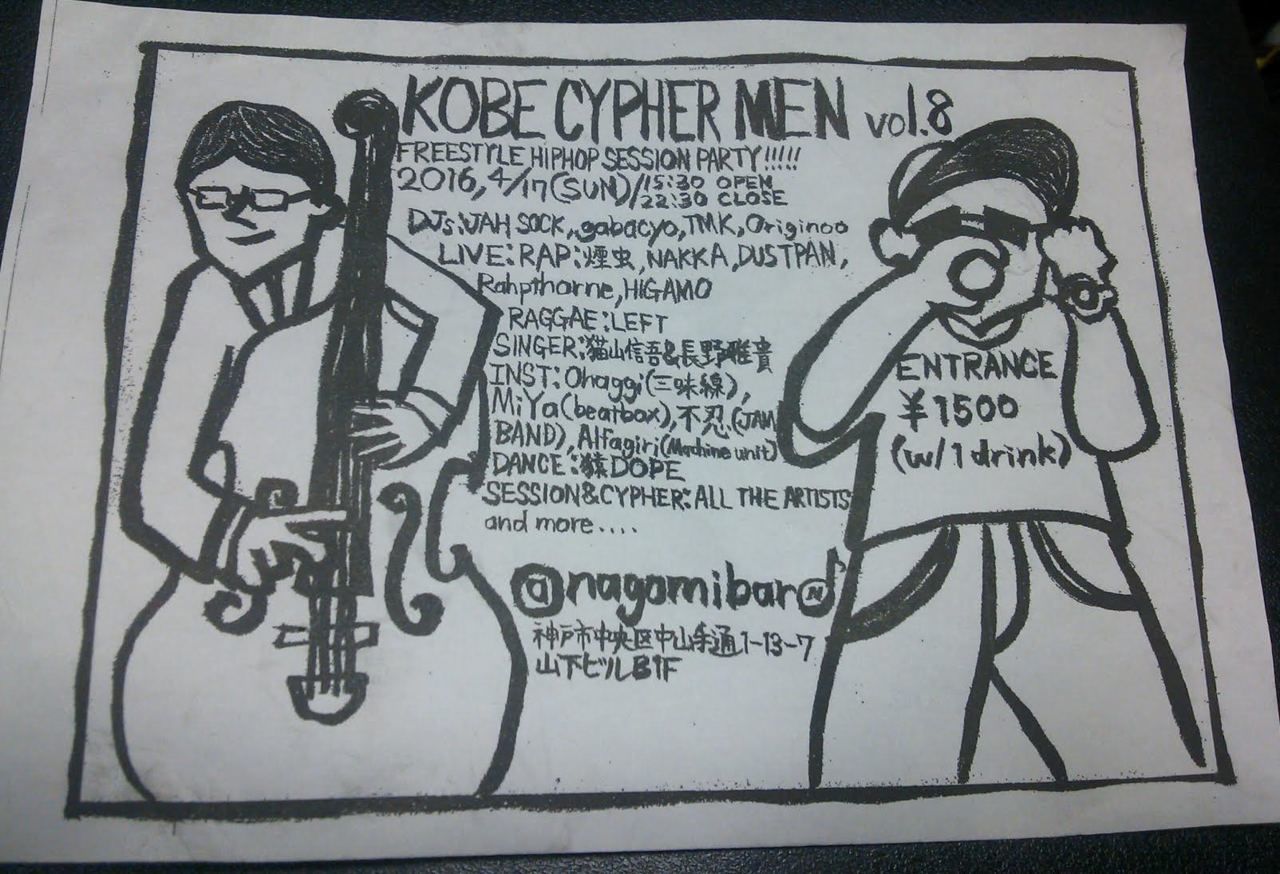 KOBE CYPHER MEN vol.8
FREESTYLE HIPHOP SESSION PARTY!!!!!
2016, 4/17(SUN)/15:30 OPEN
22:30 CLOSE
DJs:JAH SOCK, gabacyo, TMK, Originoo
LIVE:RAP:煙虫, NAKKA, DUSTPAN,
Rahpthorne, HIGAMO
RAGGAE:LEFT
SINGER:猫山信吾&長野雅貴
INST:Ohaggi(三味線),
MiYa(beatbox), 不忍(JAM
BAND), Alfagiri(Machine unit)
DANCE:猿DOPE
SESSION&CYPHER:ALL THE ARTISTS
and more....
@nagomibar
神戸市中央区中山手通1-13-7
山下ビルB1F
ENTRANCE
¥1500
(w/1drink)
N